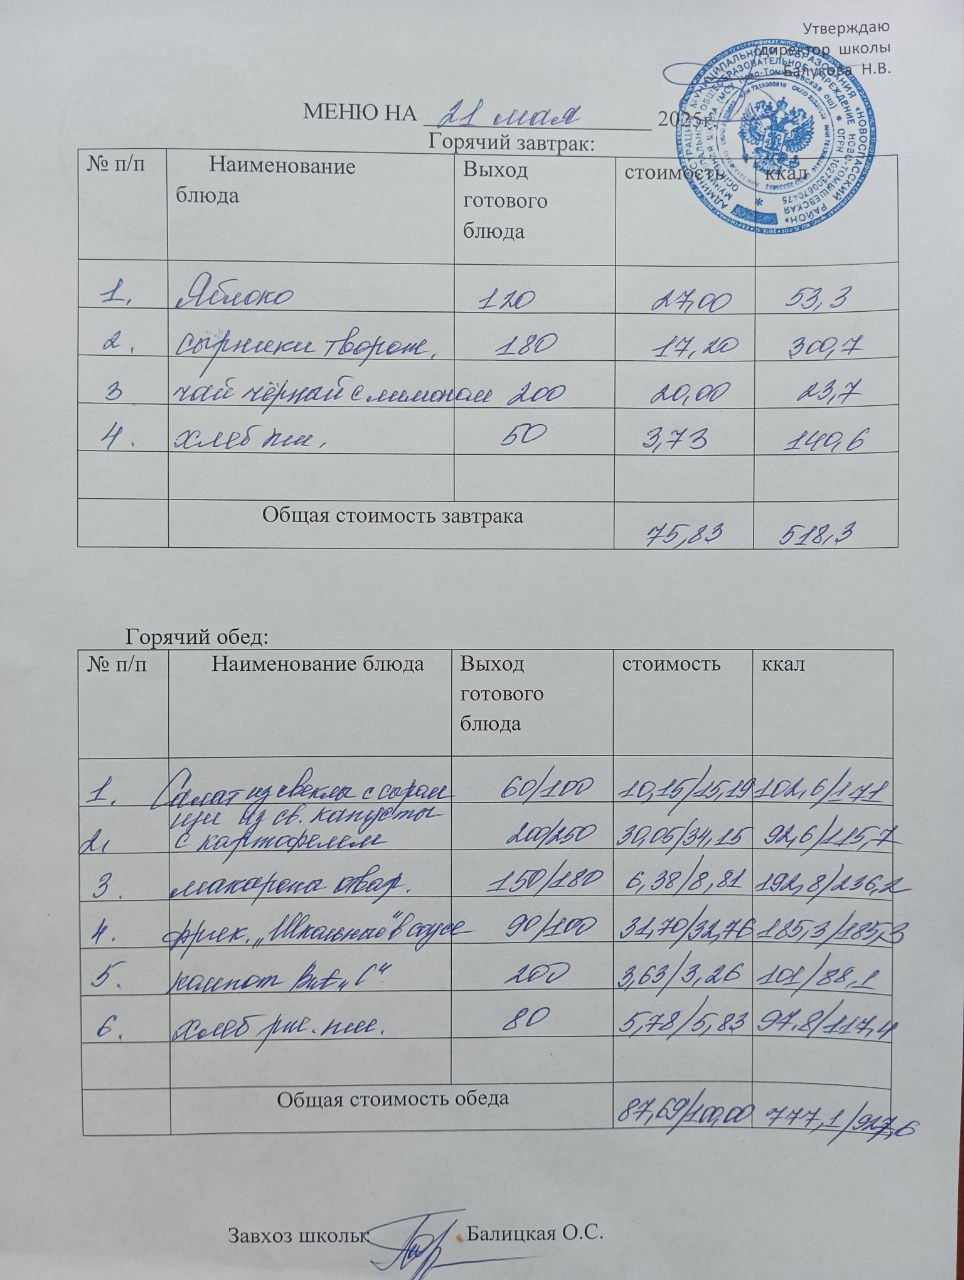 Утверждаю
директор школы
Балукова Н.В.
МЕНЮ НА 21 мая 2025г
Горячий завтрак:
№ п/п Наименование блюда Выход готового блюда стоимость ккал
1. Яблоко 120 27,00 53,3
2. сырники творож. 180 17,20 300,7
3 чай чёрный с лимоном 200 20,00 23,7
4. хлеб пш. 50 3,73 140,6
Общая стоимость завтрака 75,83 518,3
Горячий обед:
№ п/п Наименование блюда Выход готового блюда стоимость ккал
1. Салат из свеклы с сыром 60/100 10,15/15,19 102,6/171
2. щи из св. капусты
с картофелем 200/250 30,05/34,15 92,6/115,7
3. макароны отвар. 150/180 6,38/8,81 192,8/236,2
4. фрик. „Школьные" в соусе 90/100 31,70/32,76 185,3/185,3
5. компот Вит „С" 200 3,63/3,26 101/88,1
6. хлеб рж. пш. 80 5,78/5,83 97,8/117,4
Общая стоимость обеда 87,69/100,00 777,1/927,6
Завхоз школы: Балицкая О.С.